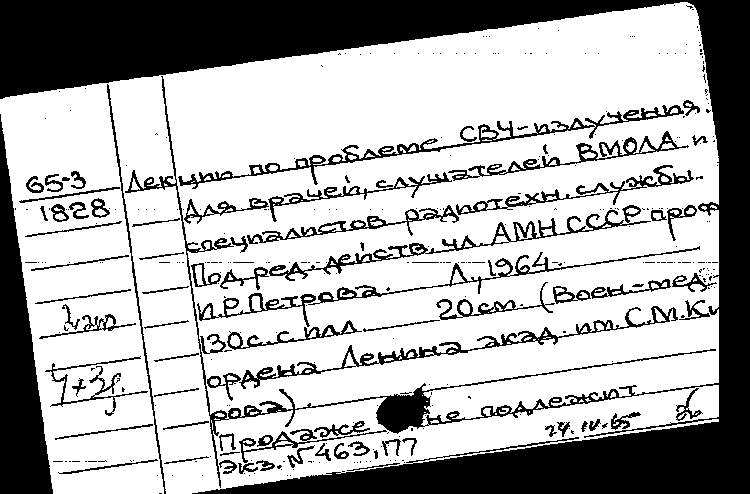 65-3 Лекции по проблеме СВЧ-излучения.
1828 Для врачей, слушателей ВМОЛА и
специалистов радиотехн. службы.
Под ред. действ. чл. АМН СССР проф
И.Р. Петрова. Л., 1964.
130с. с илл. 20см. (Воен-мед.
ордена Ленина акад. им. С.М. Ки
рова).
Продаже не подлежит.
Экз. № 463, 177
24.IV.65